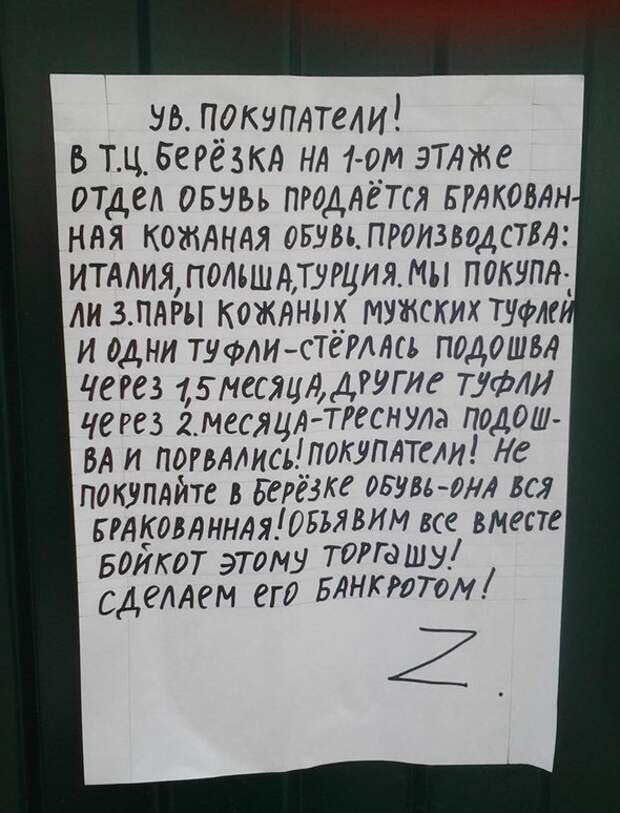 УВ. ПОКУПАТЕЛИ!
В Т.Ц. БЕРЁЗКА НА 1-ОМ ЭТАЖЕ
ОТДЕЛ ОБУВЬ ПРОДАЁТСЯ БРАКОВАН-
НАЯ КОЖАНАЯ ОБУВЬ. ПРОИЗВОДСТВА:
ИТАЛИЯ, ПОЛЬША, ТУРЦИЯ. МЫ ПОКУПА-
ЛИ 3. ПАРЫ КОЖАНЫХ МУЖСКИХ ТУФЛЕЙ
И ОДНИ ТУФЛИ-СТЁРЛАСЬ ПОДОШВА
ЧЕРЕЗ 1,5 МЕСЯЦА, ДРУГИЕ ТУФЛИ
ЧЕРЕЗ 2. МЕСЯЦА-ТРЕСНУЛА ПОДОШ-
ВА И ПОРВАЛИСЬ! ПОКУПАТЕЛИ! НЕ
ПОКУПАЙТЕ В БЕРЁЗКЕ ОБУВЬ-ОНА ВСЯ
БРАКОВАННАЯ! ОБЪЯВИМ ВСЕ ВМЕСТЕ
БОЙКОТ ЭТОМУ ТОРГАШУ!
СДЕЛАЕМ ЕГО БАНКРОТОМ!
Z.